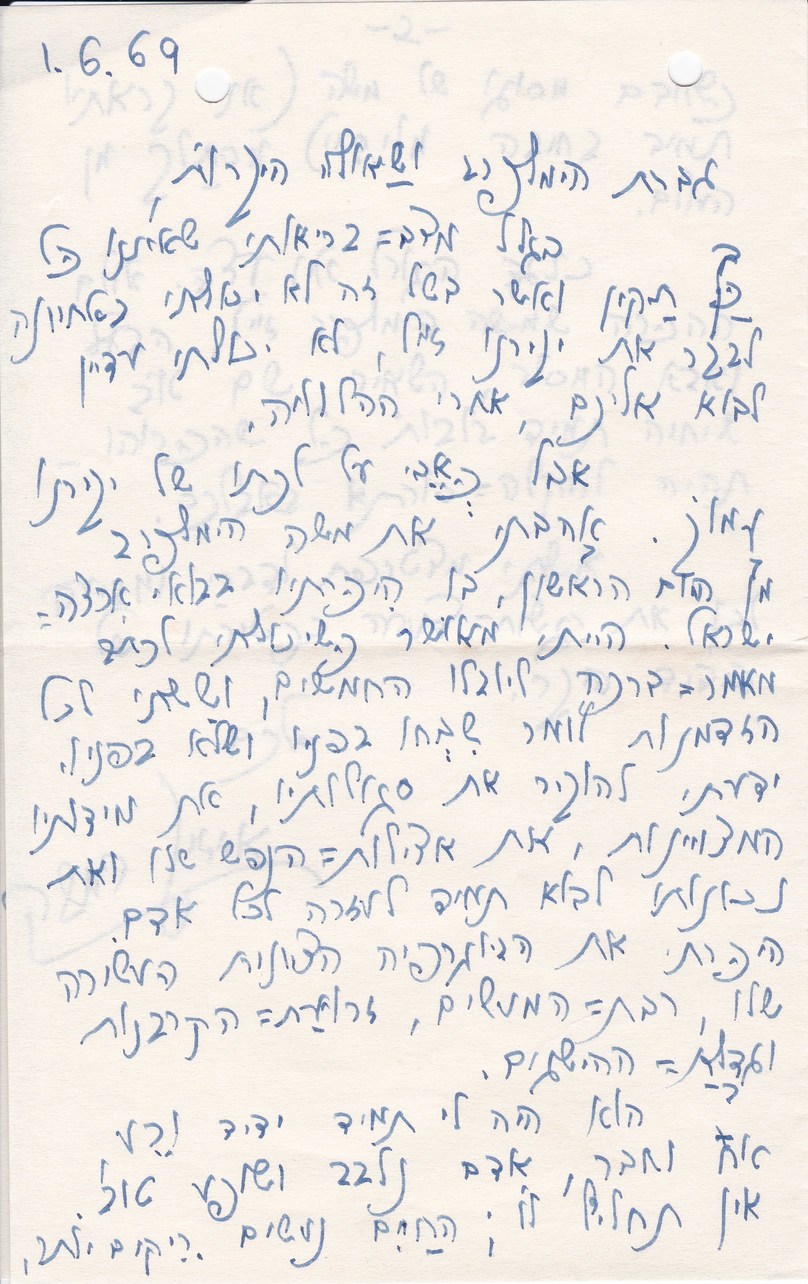 1.6.69
גברת הימלפרב ושאולה היקרות,
בגלל מצב=בריאותי שאיננו כל
כך תקין ואשר בשל זה לא יכולתי באחרונה
לבקר את יקירנו ז"ל, לא יכולתי עדיין
לבוא אליכם, אחרי ההלוויה.
אבל כאבי על לכתו של יקירנו
עמוק. אהבתי את משה הימלפרב
מן היום הראשון, בו היכרתיו בבואי ארצה=
ישראל. הייתי מאושר כשיכולתי לכתוב
מאמר=ברכה ליובלו החמשים, וששתי לכל
הזדמנות לומר שבחו בפניו ושלא בפניו.
ידעתי להוקיר את סגולותיו, את מידותיו
המצויינות, את אצילות=הנפש שלו ואת
נכונותו לבוא תמיד לעזרה לכל אדם.
היכרתי את הביוגרפיה הציונית העשירה
שלו, רבת=המעשים, זרועת=הקרבנות
וגדולת=ההישגים.
הוא היה לי תמיד ידיד ורע
אח וחבר, אדם נלבב ושופע טוב.
אין תחליף לו; החיים נעשים ריקים יותר,